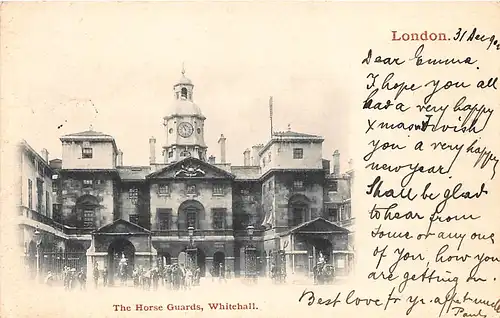 London. 31 Dec
Dear Emma.
I hope you all
had a very happy
Xmas & I wish
you a very happy
new year.
Shall be glad
to hear from
some or any one
of you, how you
are getting on.
Best love fr yr. affect
The Horse Guards, Whitehall.